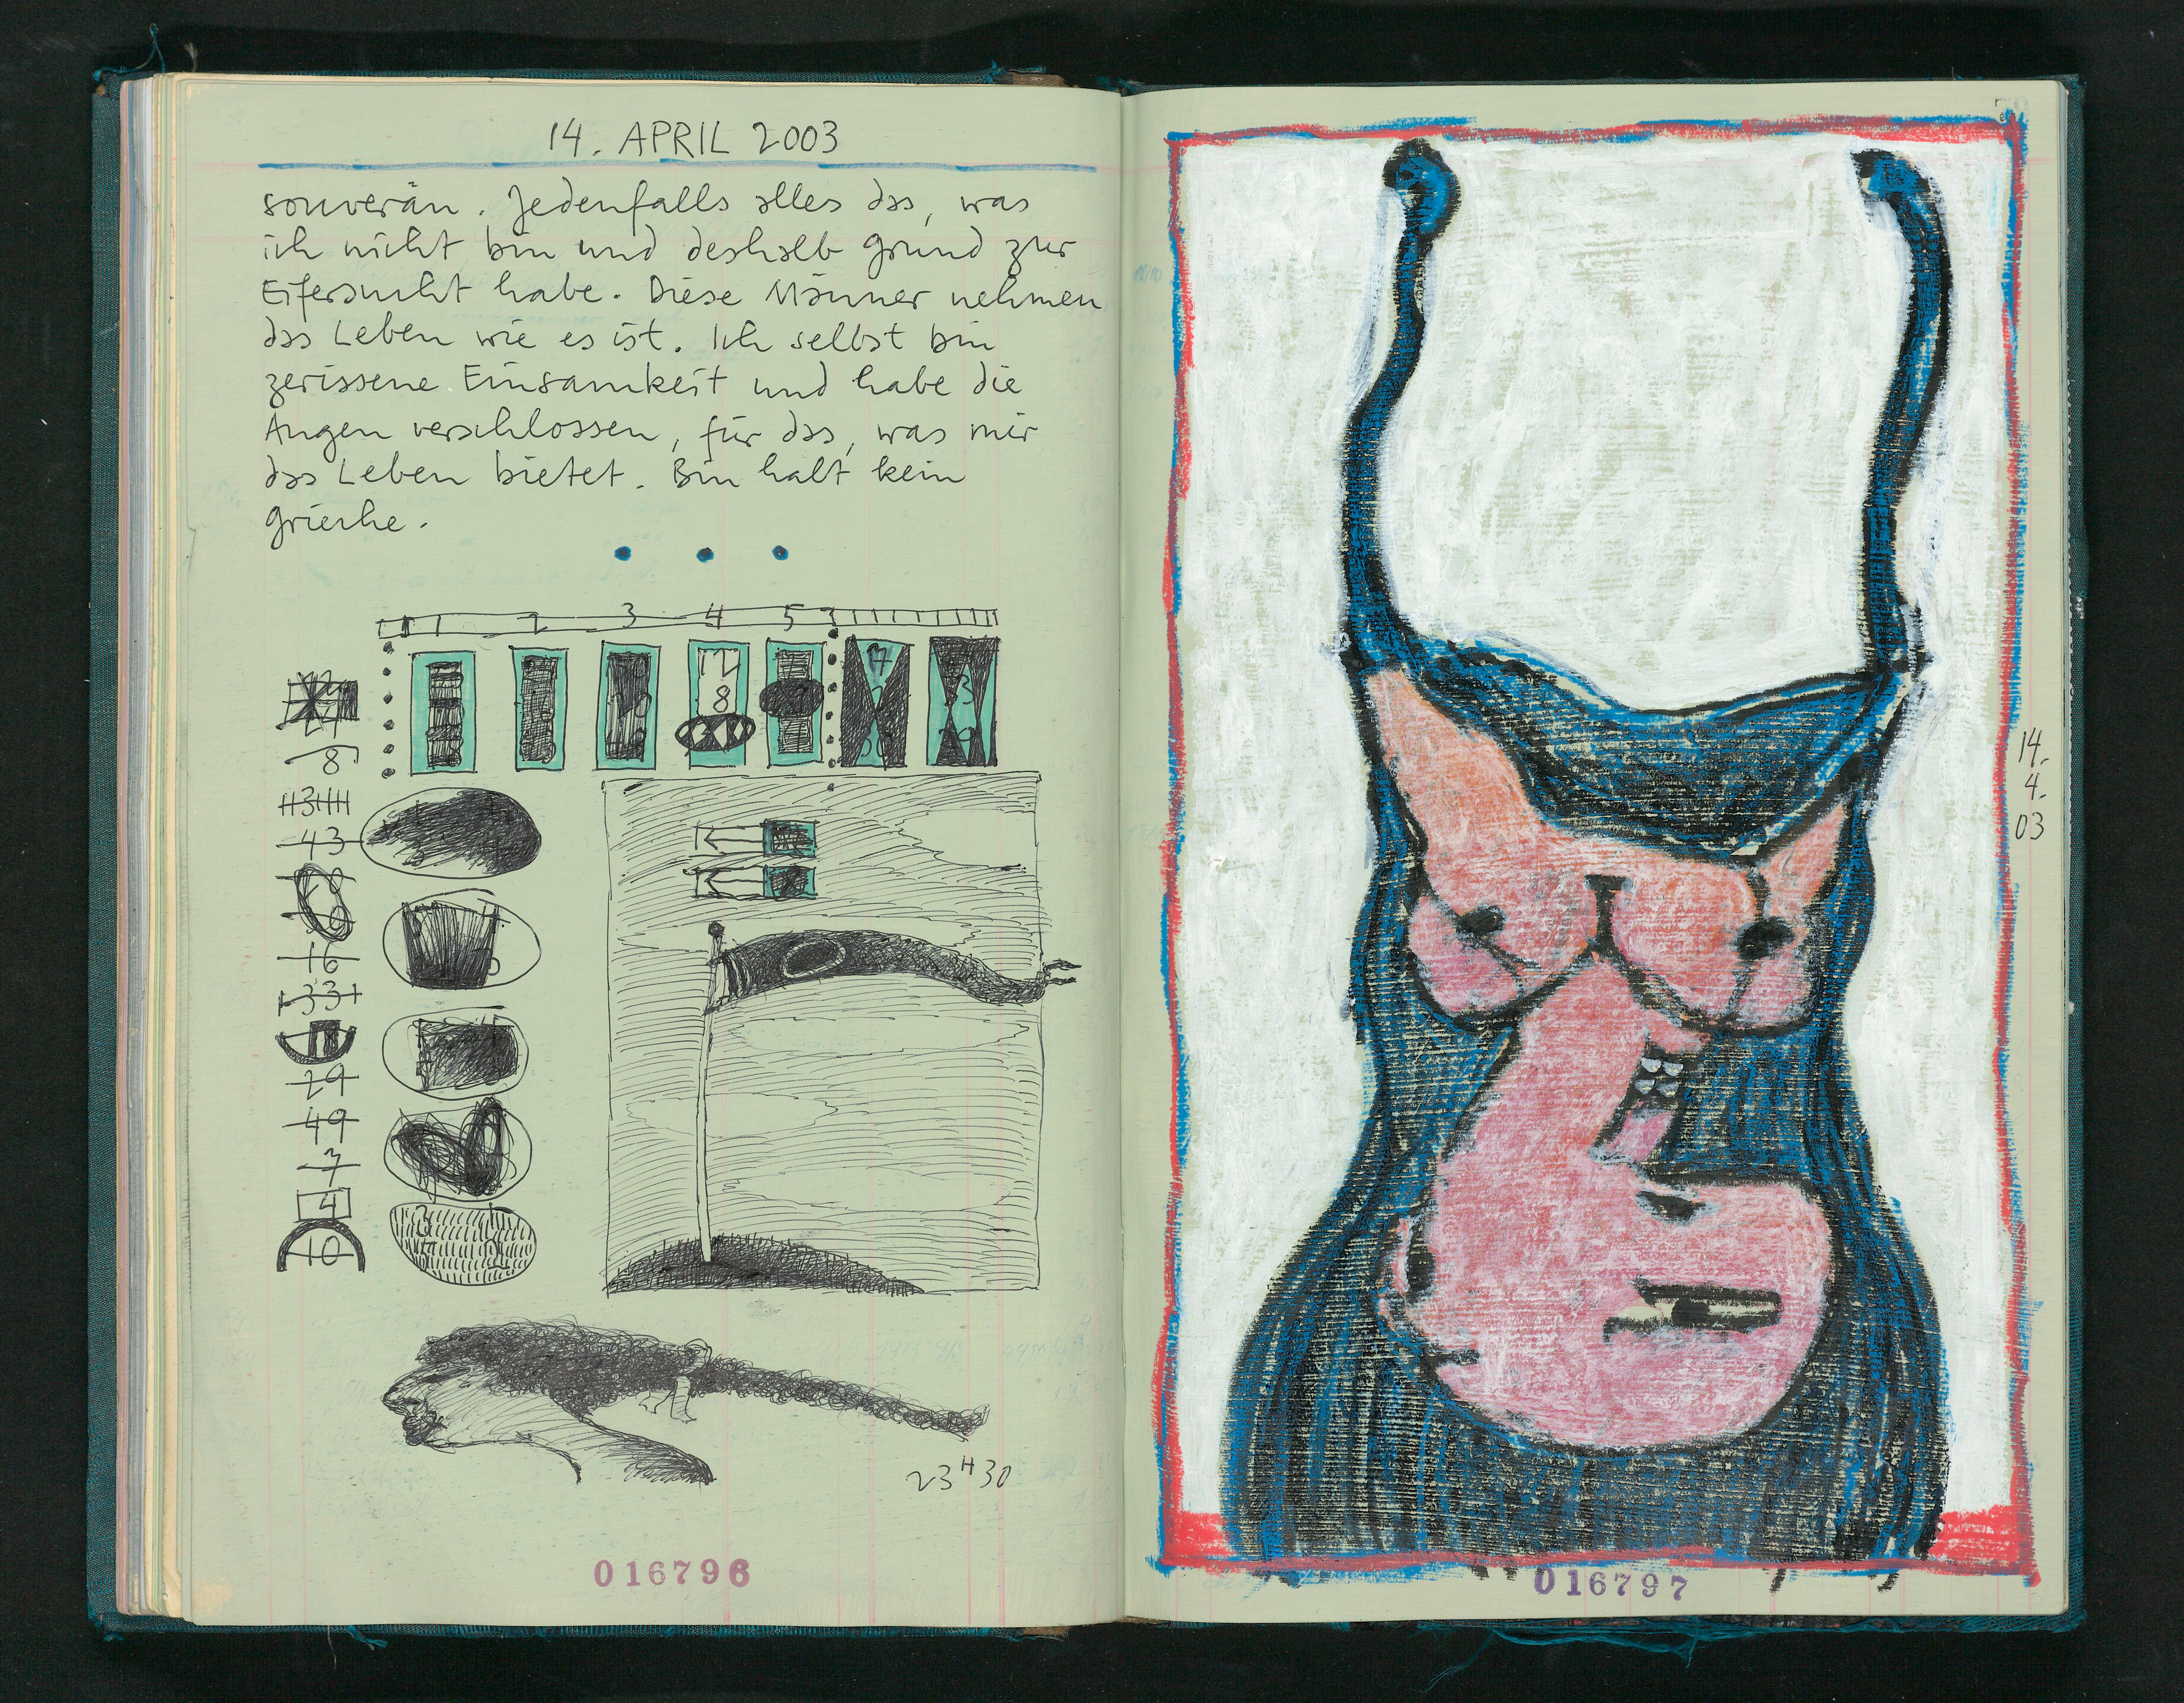 14. APRIL 2003
souverän. Jedenfalls alles das, was
ich nicht bin und deshalb Grund zur
Eifersucht habe. Diese Männer nehmen
das Leben wie es ist. Ich selbst bin
zerissene Einsamkeit und habe die
Augen verschlossen, für das, was mir
das Leben bietet. Bin halt kein
Grieche.
1 2 3 4 5
12
8
17
3
8
31
43
16
33
29
49
7
4
10
23H30
016796
14.
4.
03
016797